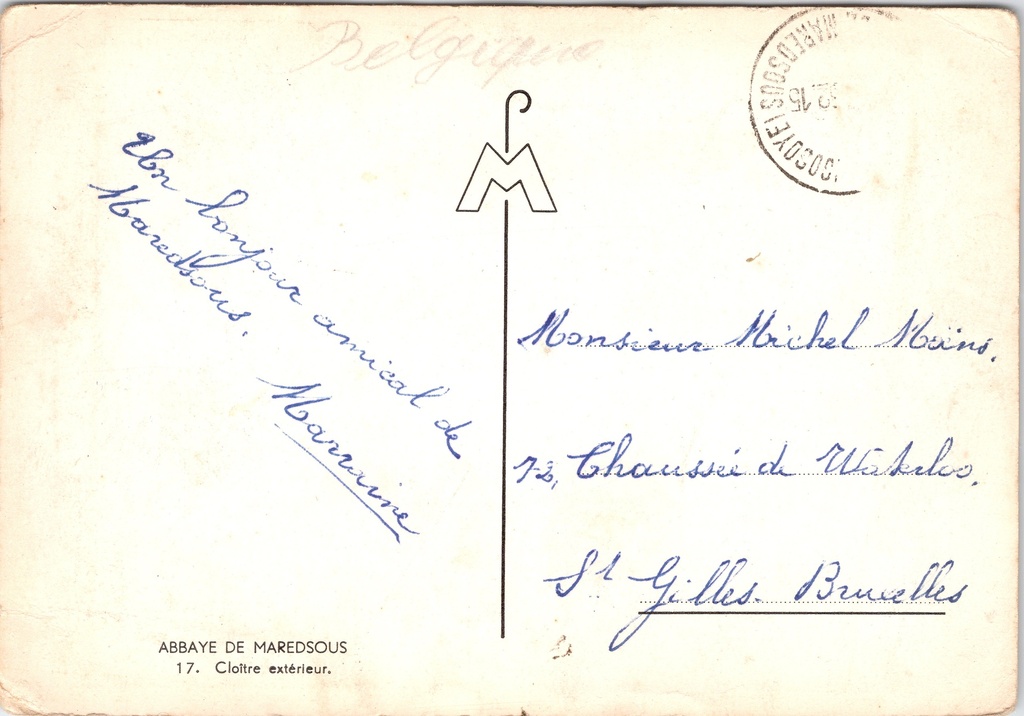 Belgique
MAREDSOUS
15
Un bonjour amical de
Maredsous.
Marraine
Monsieur Michel Moins.
72, Chaussée de Waterloo.
St Gilles. Bruxelles
ABBAYE DE MAREDSOUS
17. Cloître extérieur.